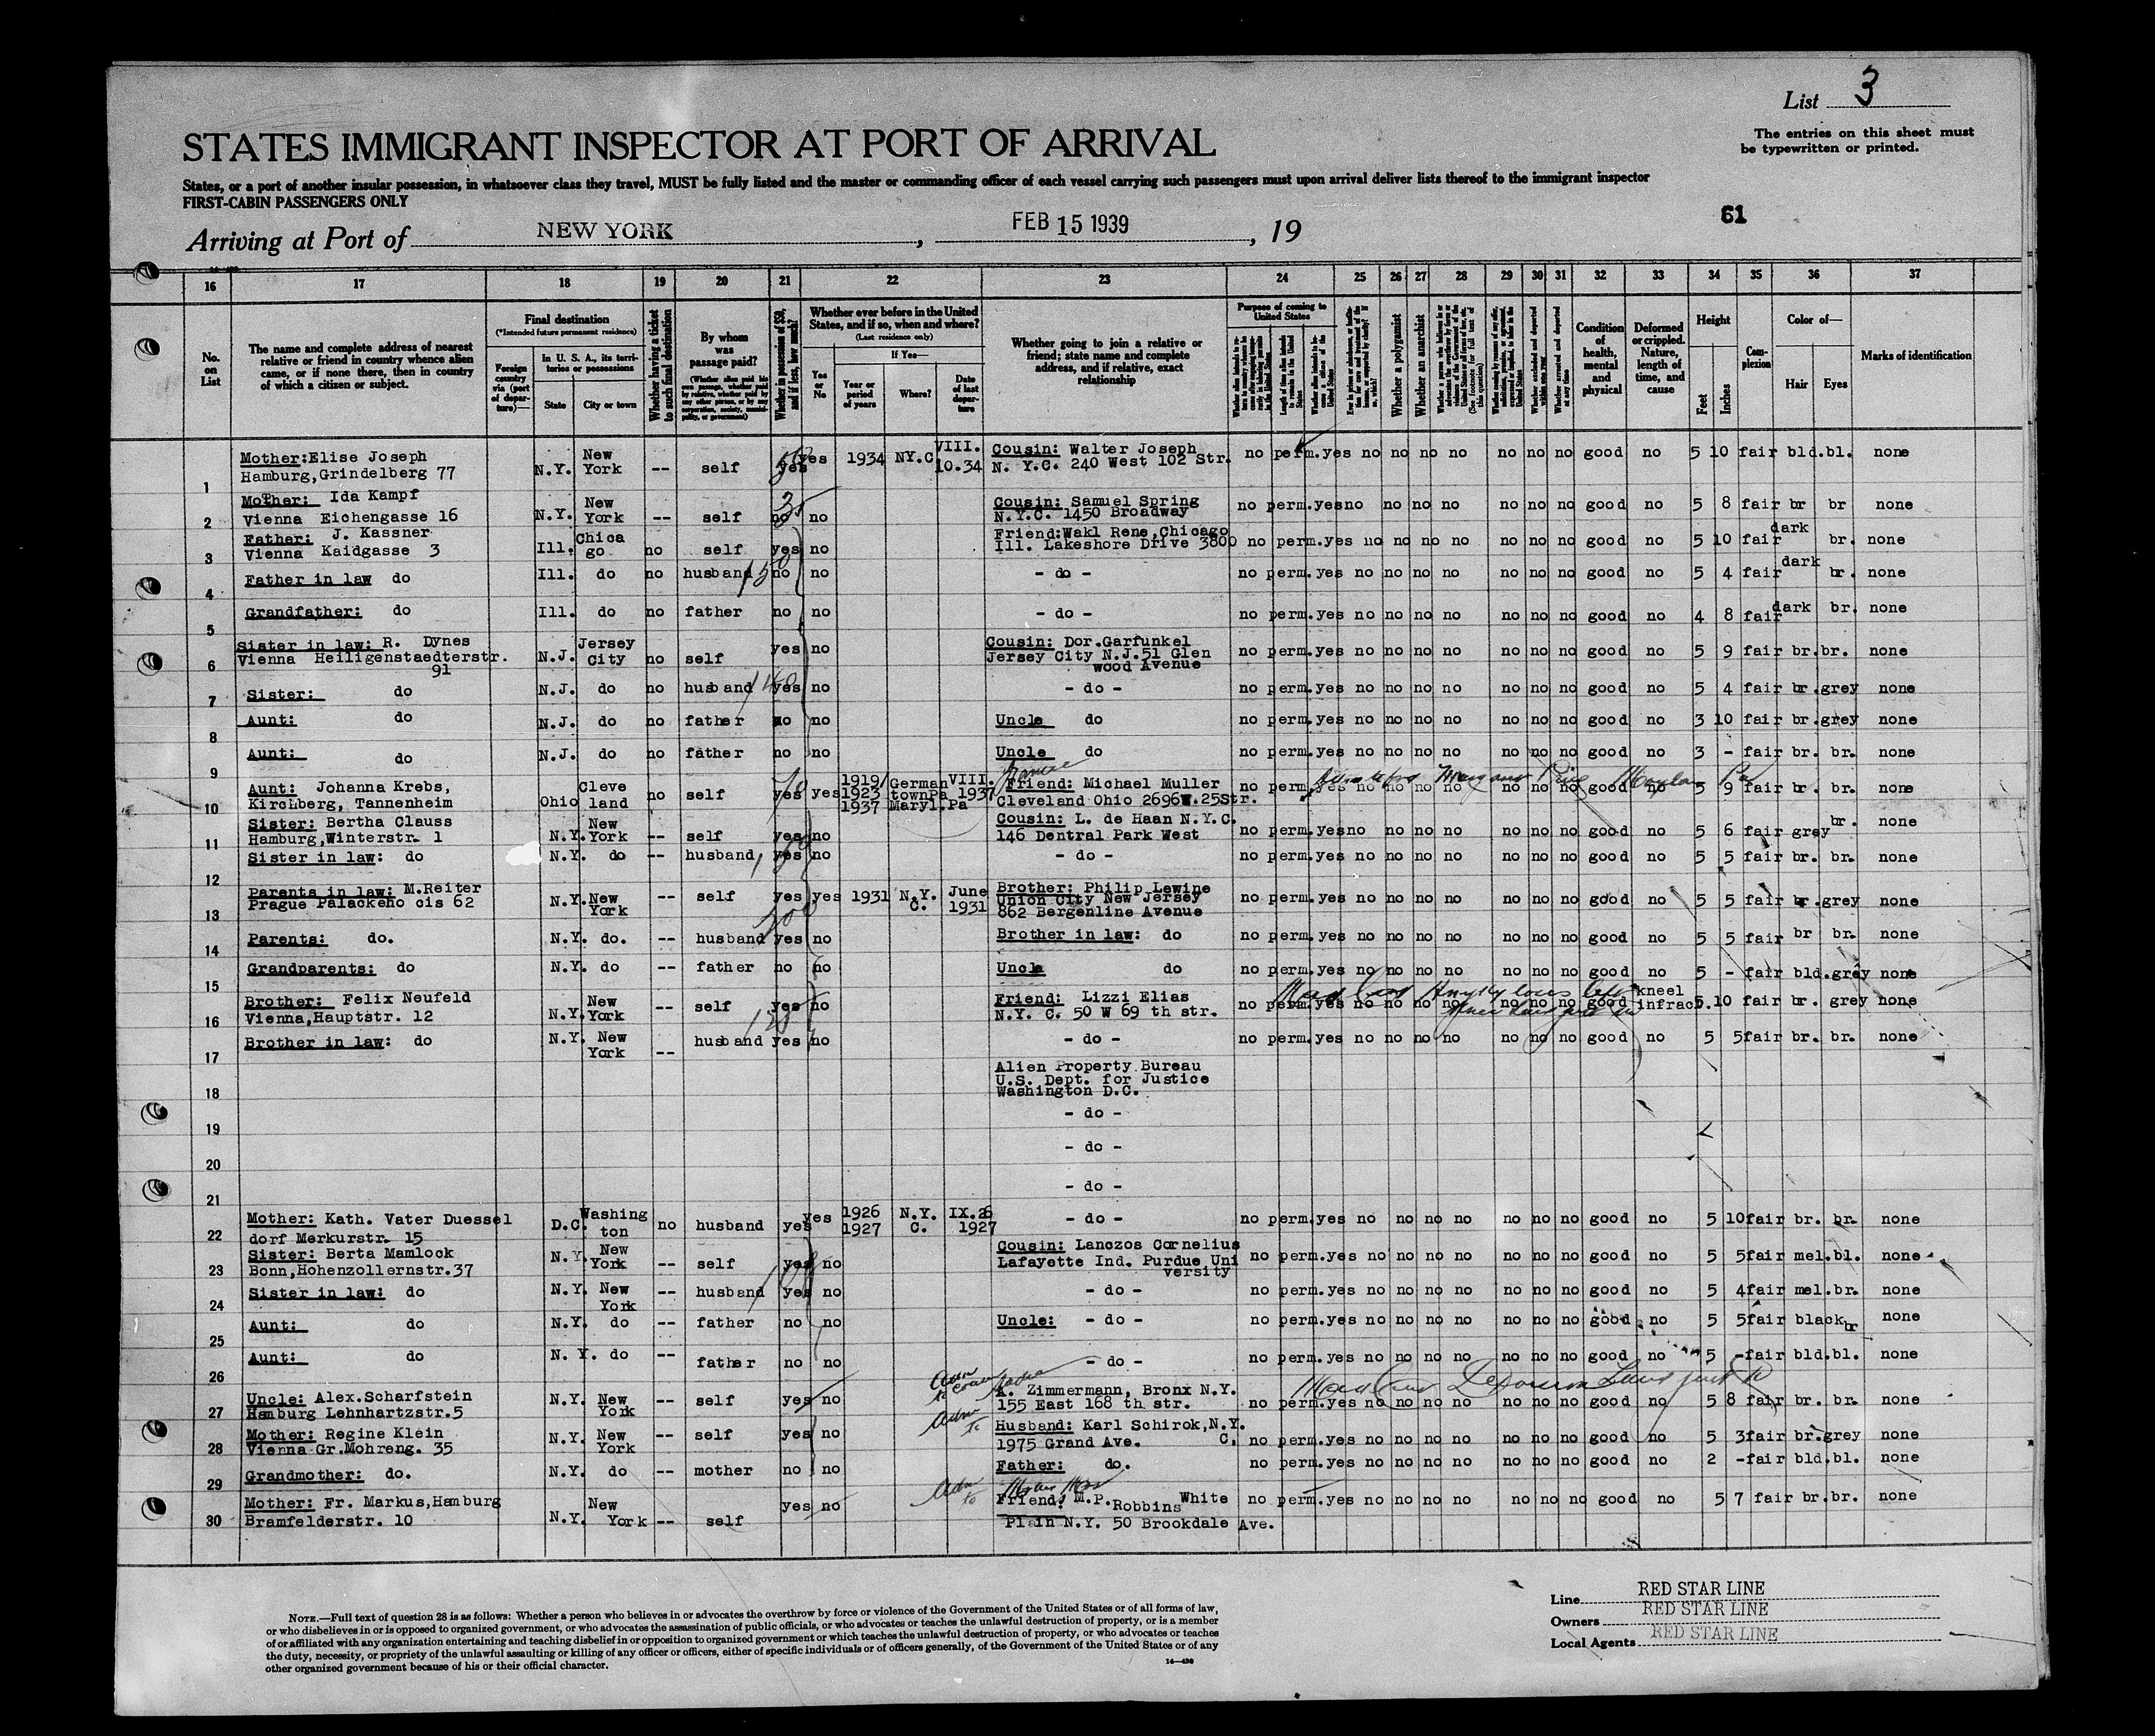 List 3
The entries on this sheet must
be typewritten or printed.
STATES IMMIGRANT INSPECTOR AT PORT OF ARRIVAL
States, or a port of another insular possession, in whatsoever class they travel, MUST be fully listed and the master or commanding officer of each vessel carrying such passengers must upon arrival deliver lists thereof to the immigrant inspector
FIRST-CABIN PASSENGERS ONLY
61
Arriving at Port of NEW YORK, FEB 15 1939, 19
16 17 18 19 20 21 22 23 24 25 26 27 28 29 30 31 32 33 34 35 36 37
No. on List
The name and complete address of nearest
relative or friend in country whence alien
came, or if none there, then in country
of which a citizen or subject.
Final destination
(*Intended future permanent residence)
Foreign country via (port of departure)—
In U. S. A., its territories or possessions
State
City or town
Whether having a ticket to such final destination
By whom was passage paid?
Whether in possession of $50, and if less, how much?
Whether ever before in the United
States, and if so, when and where?
(Last residence only)
Yes or No
If Yes—
Year or period of years
Where?
Date of last departure
Whether going to join a relative or
friend; state name and complete
address, and if relative, exact
relationship
Purpose of coming to United States
Whether a polygamist
Whether an anarchist
Condition of health, mental and physical
Deformed or crippled. Nature, length of time, and cause
Height
Feet
Inches
Complexion
Color of—
Hair
Eyes
Marks of identification
1 Mother: Elise Joseph Hamburg, Grindelberg 77 N.Y. New York -- self yes yes 1934 NY.C VIII. 10.34 Cousin: Walter Joseph N. Y.C. 240 West 102 Str. no perm. yes no no no no no no no good no 5 10 fair bld. bl. none
2 Mother: Ida Kampf Vienna Eichengasse 16 N.Y. New York -- self no no Cousin: Samuel Spring N.Y.C. 1450 Broadway no perm. yes no no no no no no no good no 5 8 fair br br none
3 Father: J. Kassner Vienna Kaidgasse 3 Ill. Chicago no self yes no Friend: Wakl Rene, Chicago Ill. Lakeshore Drive 3800 no perm. yes no no no no no no no good no 5 10 fair dark br. none
4 Father in law do Ill. do no husband no no - do - no perm. yes no no no no no no no good no 5 4 fair dark br. none
5 Grandfather: do Ill. do no father no no - do - no perm. yes no no no no no no no good no 4 8 fair dark br. none
6 Sister in law: R. Dynes Vienna Heiligenstaedterstr. 91 N.J. Jersey City no self yes no Cousin: Dor. Garfunkel Jersey City N.J. 51 Glen wood Avenue no perm. yes no no no no no no no good no 5 9 fair br. br. none
7 Sister: do N.J. do no husband yes no - do - no perm. yes no no no no no no no good no 5 4 fair br. grey none
8 Aunt: do N.J. do no father no no Uncle do no perm. yes no no no no no no no good no 3 10 fair br. grey none
9 Aunt: do N.J. do no father no no Uncle do no perm. yes no no no no no no no good no 3 - fair br. br. none
10 Aunt: Johanna Krebs, Kirchberg, Tannenheim Ohio Cleveland no self yes yes 1919/1923 1937 German townPa Maryl.Pa VIII. 1937 Friend: Michael Muller Cleveland Ohio 2696W.25Str. no perm. yes no no no no no no no good no 5 9 fair br. br. none
11 Sister: Bertha Clauss Hamburg, Winterstr. 1 N.Y. New York -- self yes no Cousin: L. de Haan N.Y.C. 146 Dentral Park West no perm. yes no no no no no no no good no 5 6 fair grey br. none
12 Sister in law: do N.Y. do -- husband yes no - do - no perm. yes no no no no no no no good no 5 5 fair br. br. none
13 Parents in law: M.Reiter Prague Palackeho cis 62 N.Y. New York -- self yes yes 1931 N.Y. C. June 1931 Brother: Philip Lewine Union City New Jersey 862 Bergenline Avenue no perm. yes no no no no no no no good no 5 5 fair br. grey none
14 Parents: do. N.Y. do. -- husband yes no Brother in law: do no perm. yes no no no no no no no good no 5 5 fair br br. none
15 Grandparents: do N.Y. do -- father no no Uncle do no perm. yes no no no no no no no good no 5 - fair bld. grey none
16 Brother: Felix Neufeld Vienna, Hauptstr. 12 N.Y. New York -- self yes no Friend: Lizzi Elias N.Y. C. 50 W 69 th str. no perm. yes no no no no no no no good kneel infrac. 5 10 fair br. grey none
17 Brother in law: do N.Y. New York -- husband yes no - do - no perm. yes no no no no no no no good no 5 5 fair br. br. none
18 Alien Property Bureau U.S. Dept. for Justice Washington D.C.
19 - do -
20 - do -
21 - do -
22 Mother: Kath. Vater Duesseldorf Merkurstr. 15 D.C. Washington no husband yes yes 1926 1927 N.Y. C. IX.26 1927 - do - no perm. yes no no no no no no no good no 5 10 fair br. br. none
23 Sister: Berta Mamlock Bonn, Hohenzollernstr. 37 N.Y. New York -- self yes no Cousin: Lanczos Cornelius Lafayette Ind. Purdue University no perm. yes no no no no no no no good no 5 5 fair mel. bl. none
24 Sister in law: do N.Y. New York -- husband yes no - do - no perm. yes no no no no no no no good no 5 4 fair mel. br. none
25 Aunt: do N.Y. do -- father no no Uncle: - do - no perm. yes no no no no no no no good no 5 5 fair black br none
26 Aunt: do N. Y. do -- father no no - do - no perm. yes no no no no no no no good no 5 - fair bld. bl. none
27 Uncle: Alex. Scharfstein Hamburg Lehnhartzstr. 5 N.Y. New York -- self yes no A. Zimmermann, Bronx N.Y. 155 East 168 th str. no perm. yes no no no no no no no good no 5 8 fair br. br. none
28 Mother: Regine Klein Vienna Gr. Mohreng. 35 N.Y. New York -- self yes no Husband: Karl Schirok, N.Y. C. 1975 Grand Ave. no perm. yes no no no no no no no good no 5 3 fair br. grey none
29 Grandmother: do. N.Y. do -- mother no no Father: do. no perm. yes no no no no no no no good no 2 - fair bld. bl. none
30 Mother: Fr. Markus, Hamburg Bramfelderstr. 10 N.Y. New York -- self yes no Friend: M.P. Robbins White Plain N.Y. 50 Brookdale Ave. no perm. yes no no no no no no no good no 5 7 fair br. br. none
NOTE.—Full text of question 28 is as follows: Whether a person who believes in or advocates the overthrow by force or violence of the Government of the United States or of all forms of law,
or who disbelieves in or is opposed to organized government, or who advocates the assassination of public officials, or who advocates or teaches the unlawful destruction of property, or is a member
of or affiliated with any organization entertaining and teaching disbelief in or opposition to organized government or which teaches the unlawful destruction of property, or who advocates or teaches
the duty, necessity, or propriety of the unlawful assaulting or killing of any officer or officers, either of specific individuals or of officers generally, of the Government of the United States or of any
other organized government because of his or their official character.
14—430
Line RED STAR LINE
Owners RED STAR LINE
Local Agents RED STAR LINE